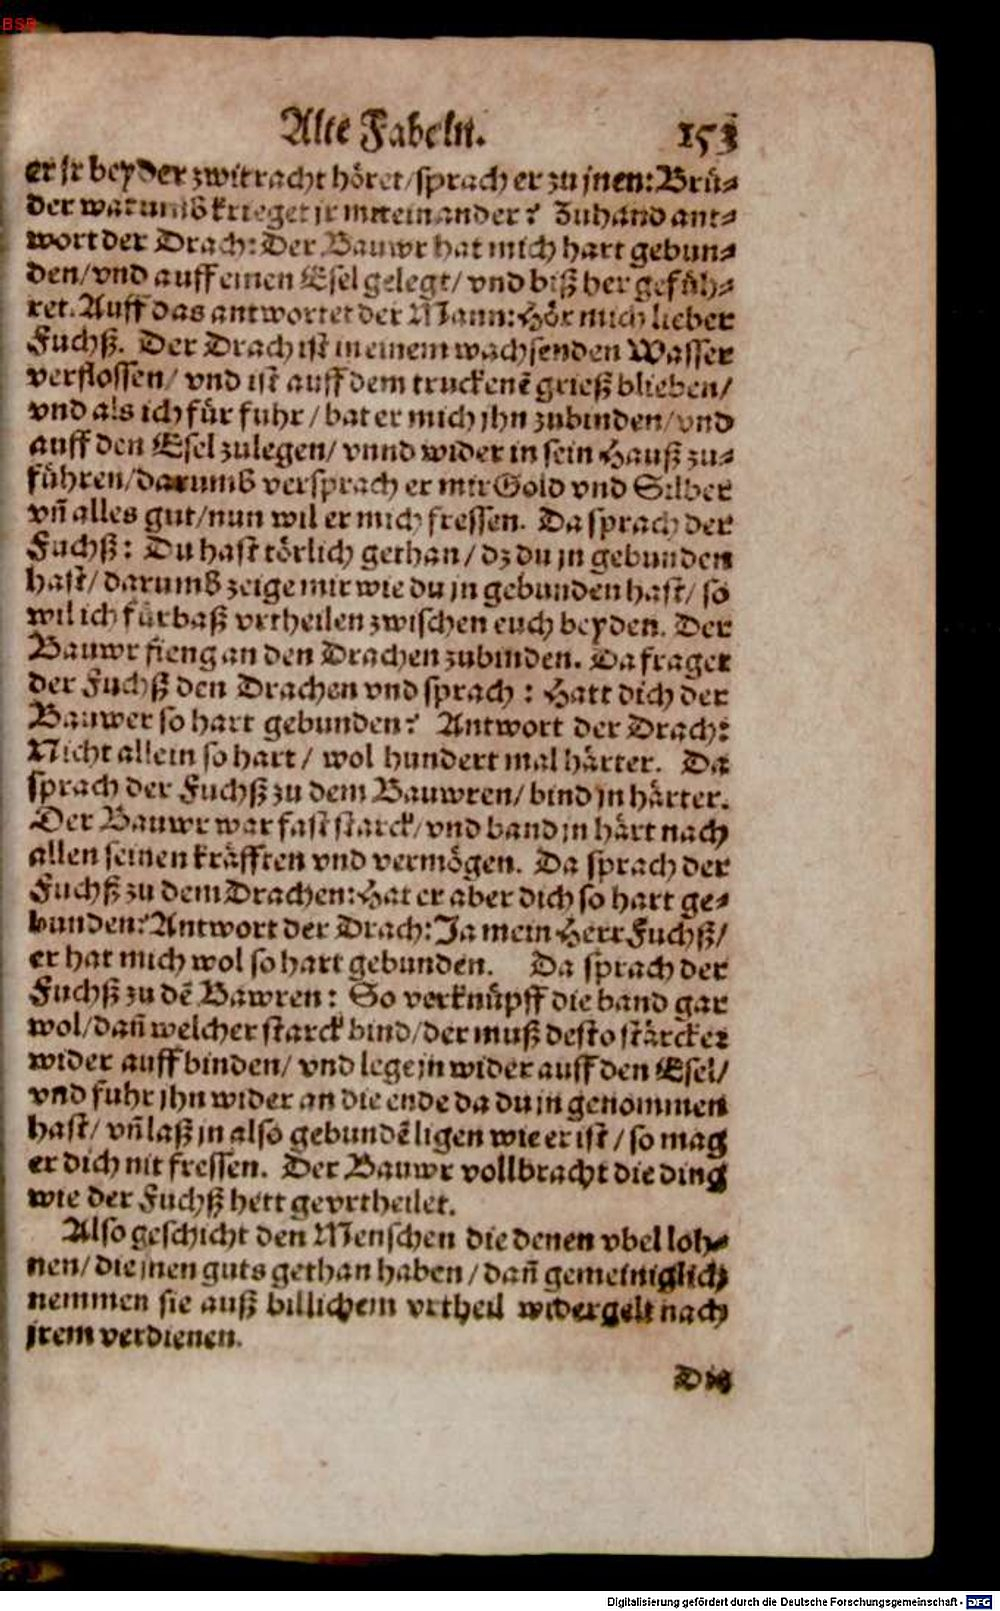 BSB
Alte Fabeln. 153
er jr beyder zwitracht höret/sprach er zu jnen: Brü⸗
der warumb krieget jr miteinander? Zuhand ant⸗
wort der Drach: Der Bauwr hat mich hart gebun⸗
den/vnd auff einen Esel gelegt/ vnd biß her gefüh⸗
ret. Auff das antwortet der Mann: Hör mich lieber
Fuchß. Der Drach ist in einem wachsenden Wasser
verflossen/ vnd ist auff dem truckenẽ grieß blieben/
vnd als ich für fuhr/ bat er mich jhn zubinden/ vnd
auff den Esel zulegen/ vnnd wider in sein Hauß zu⸗
führen/darumb versprach er mir Gold vnd Silber
vñ alles gut/nun wil er mich fressen. Da sprach der
Fuchß: Du hast törlich gethan/ dz du jn gebunden
hast/ darumb zeige mir wie du jn gebunden hast/ so
wil ich fürbaß vrtheilen zwischen euch beyden. Der
Bauwr fieng an den Drachen zubinden. Da fraget
der Fuchß den Drachen vnd sprach: Hatt dich der
Bauwer so hart gebunden? Antwort der Drach:
Nicht allein so hart/ wol hundert mal härter. Da
sprach der Fuchß zu dem Bauwren/ bind jn härter.
Der Bauwr war fast starck/ vnd band jn härt nach
allen seinen kräfften vnd vermögen. Da sprach der
Fuchß zu dem Drachen: Hat er aber dich so hart ge⸗
bunden? Antwort der Drach: Ja mein Herr Fuchß/
er hat mich wol so hart gebunden. Da sprach der
Fuchß zu dẽ Bawren: So verknüpff die band gar
wol/dañ welcher starck bind/der muß desto stärcker
wider auff binden/ vnd lege jn wider auff den Esel/
vnd fuhr jhn wider an die ende da du jn genommen
hast/ vñ laß jn also gebundẽ ligen wie er ist/ so mag
er dich nit fressen. Der Bauwr vollbracht die ding
wie der Fuchß hett gevrtheilet.
Also geschicht den Menschen die denen vbel loh⸗
nen/ die jnen guts gethan haben/ dañ gemeiniglich
nemmen sie auß billichem vrtheil widergelt nach
jrem verdienen.
Die
Digitalisierung gefördert durch die Deutsche Forschungsgemeinschaft - DFG